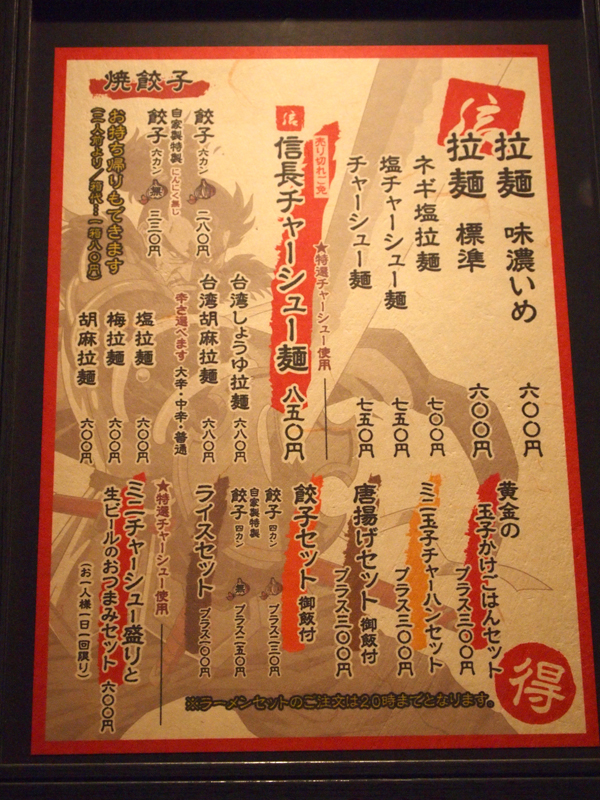 信
拉麺 味濃いめ 六〇〇円
拉麺 標準 六〇〇円
ネギ塩拉麺 七〇〇円
塩チャーシュー麺 七五〇円
チャーシュー麺 七五〇円
★特選チャーシュー使用
売り切れご免
信長チャーシュー麺 八五〇円
台湾しょうゆ拉麺 六八〇円
台湾胡麻拉麺 六八〇円
辛さ選べます 大辛・中辛・普通
塩拉麺 六〇〇円
梅拉麺 六〇〇円
胡麻拉麺 六〇〇円
焼餃子
餃子 六カン 二八〇円
自家製特製 にんにく無し
餃子 六カン 無 三三〇円
お持ち帰りもできます
(二人前より/箱代…一箱八〇円)
黄金の
玉子かけごはんセット
プラス三〇〇円
ミニ玉子チャーハンセット
プラス三〇〇円
唐揚げセット 御飯付
プラス三〇〇円
餃子セット 御飯付
餃子 四カン プラス二三〇円
自家製特製
餃子 四カン 無 プラス二五〇円
ライスセット プラス一〇〇円
★特選チャーシュー使用
ミニチャーシュー盛りと
生ビールのおつまみセット 六〇〇円
(お一人様一日一回限り)
※ラーメンセットのご注文は20時までとなります。
得